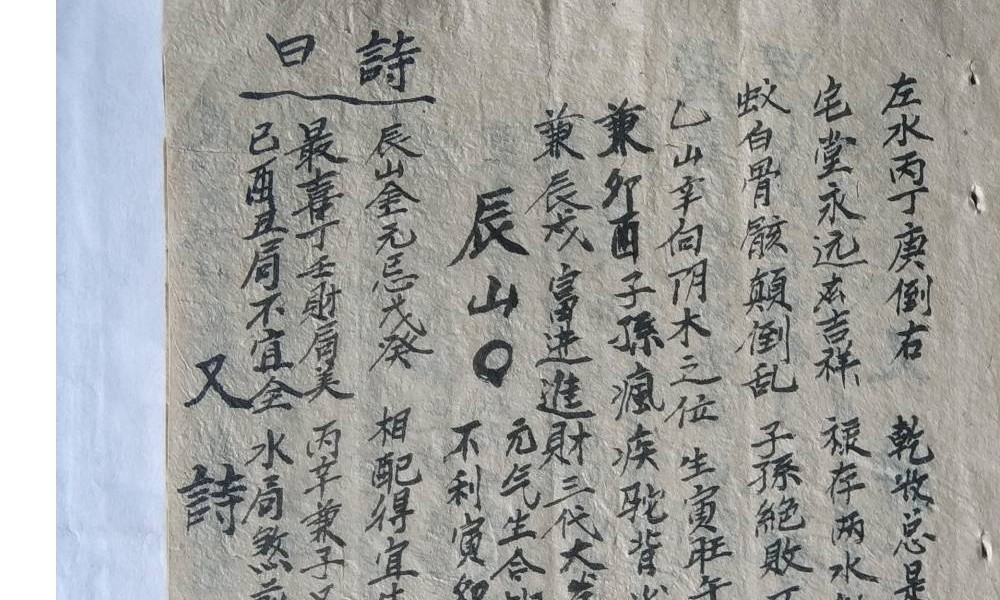 左水丙丁庚倒右 乾總是
宅堂永远大吉祥 禄存两水
蚁白骨骸顛倒乱 子孫絶敗
乙山辛向阴木之位 生寅旺午
兼卯酉子孫瘋疾駝背
兼辰戌富進進財三代大
辰山〇
元气生合
不利寅
詩曰
辰山金元忌戊癸 相配得宜
最喜丁壬財局美 丙辛兼子
己酉丑局不宜全 水局煞
又詩